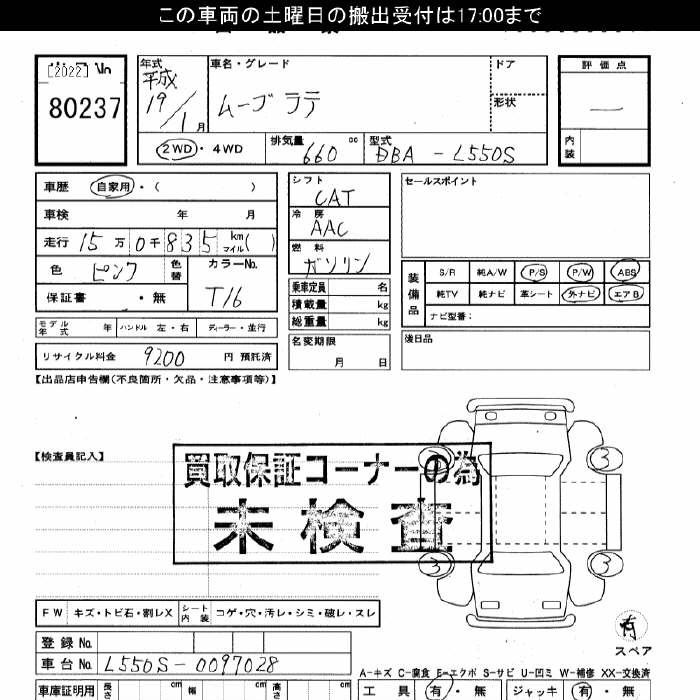 この車両の土曜日の搬出受付は17:00まで
[2022] No
80237
年式
平成
19/1月
車名・グレード
ムーヴ ラテ
ドア
形状
評価点
—
内装
2WD・4WD
排気量
660 cc
型式
DBA - L550S
車歴 自家用・( )
車検 年 月
走行 15万0千835 km マイル( )
色 ピンク 色替
カラーNo.
T16
保証書 ・無
モデル年式 年 ハンドル 左・右 ディーラー・並行
リサイクル料金 9200 円 預託済
シフト
CAT
冷房
AAC
燃料
ガソリン
乗車定員 名
積載量 kg
総重量 kg
名変期限
月 日
セールスポイント
装備品
S/R 純A/W P/S P/W ABS
純TV 純ナビ 革シート 外ナビ エアB
ナビ型番:
後日品
【出品店申告欄(不良箇所・欠品・注意事項等)】
【検査員記入】
買取保証コーナーの為
未検査
3
3
3
3
有
スペア
FW キズ・トビ石・割レX シート内装 コゲ・穴・汚レ・シミ・破レ・スレ
登録 No.
車台 No. L550S-0097028
A-キズ C-腐食 E-エクボ S-サビ U-凹ミ W-補修 XX-交換済
車庫証明用 長さ cm 幅 cm 高さ cm
工具 有・無 ジャッキ 有・無